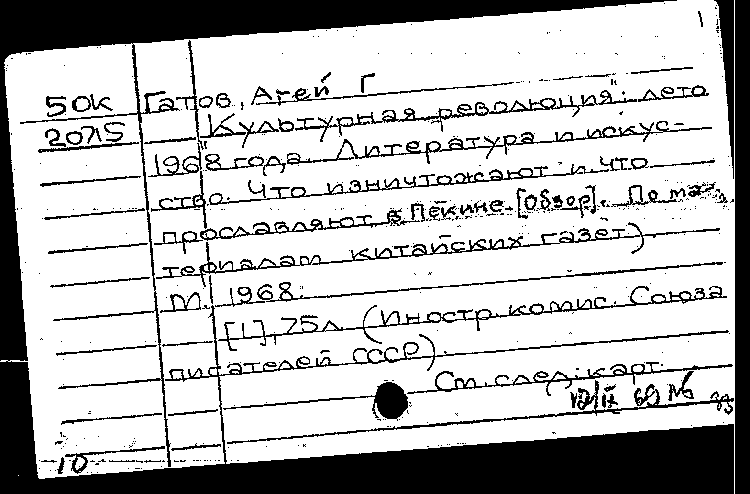 1
50К Гатов, Агей Г
20715 "Культурная революция": лето
1968 года. Литература и искус-
ство. Что изничтожают и что
прославляют в Пекине. [Обзор]. По ма-
териалам китайских газет)
М. 1968.
[1], 75л. (Иностр. комис. Союза
писателей СССР).
См. след. карт.
12/IX 69
10